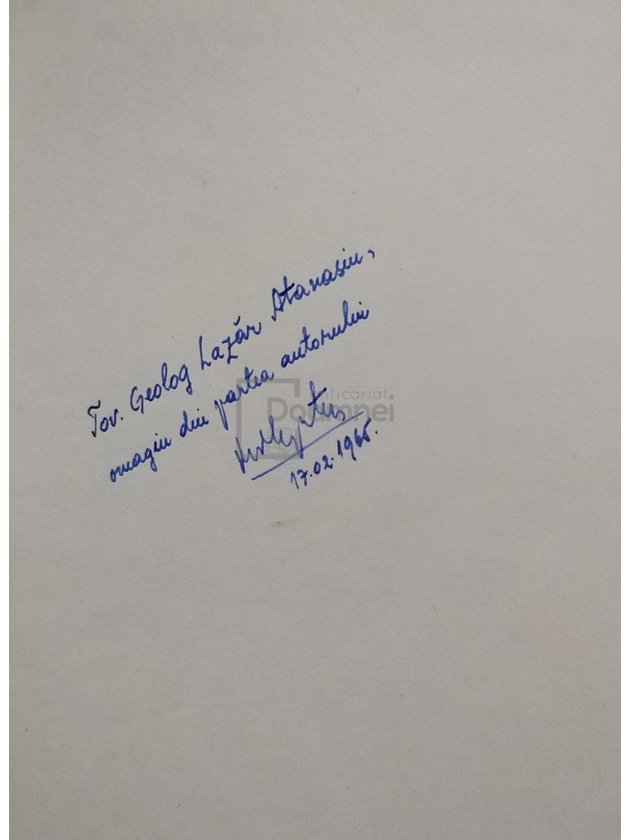 Tov. Geolog Lazăr Atanasiu,
omagiu din partea autorului
17.02.1965.
Anticariat
Doamnei